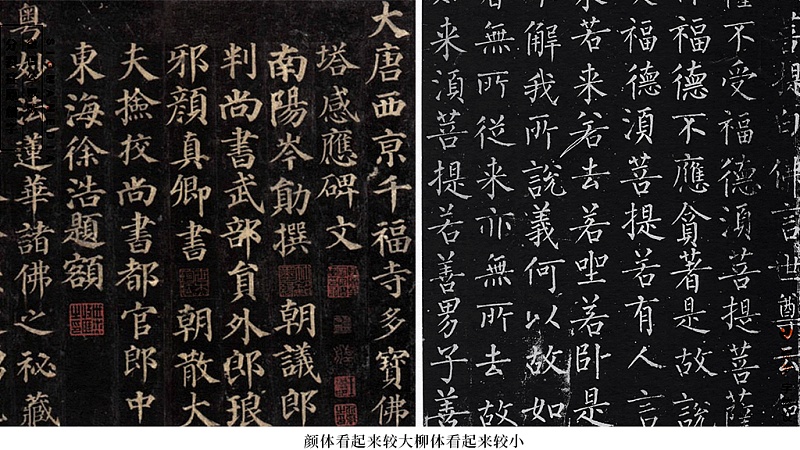 大唐西京千福寺多寶佛
塔感應碑文
南陽岑勛撰 朝議郎
判尚書武部貟外郎琅
邪顏真卿書 朝散大
夫撿挍尚書都官郎中
東海徐浩題額
粵妙法蓮華諸佛之秘藏
菩提白佛言世尊云何
薩不受福德須菩提菩薩
福德不應貪著是故說
福德須菩提若有人言
若来若去若坐若卧是
解我所說義何以故如
無所從来亦無所去故
来須菩提若善男子善
颜体看起来较大柳体看起来较小